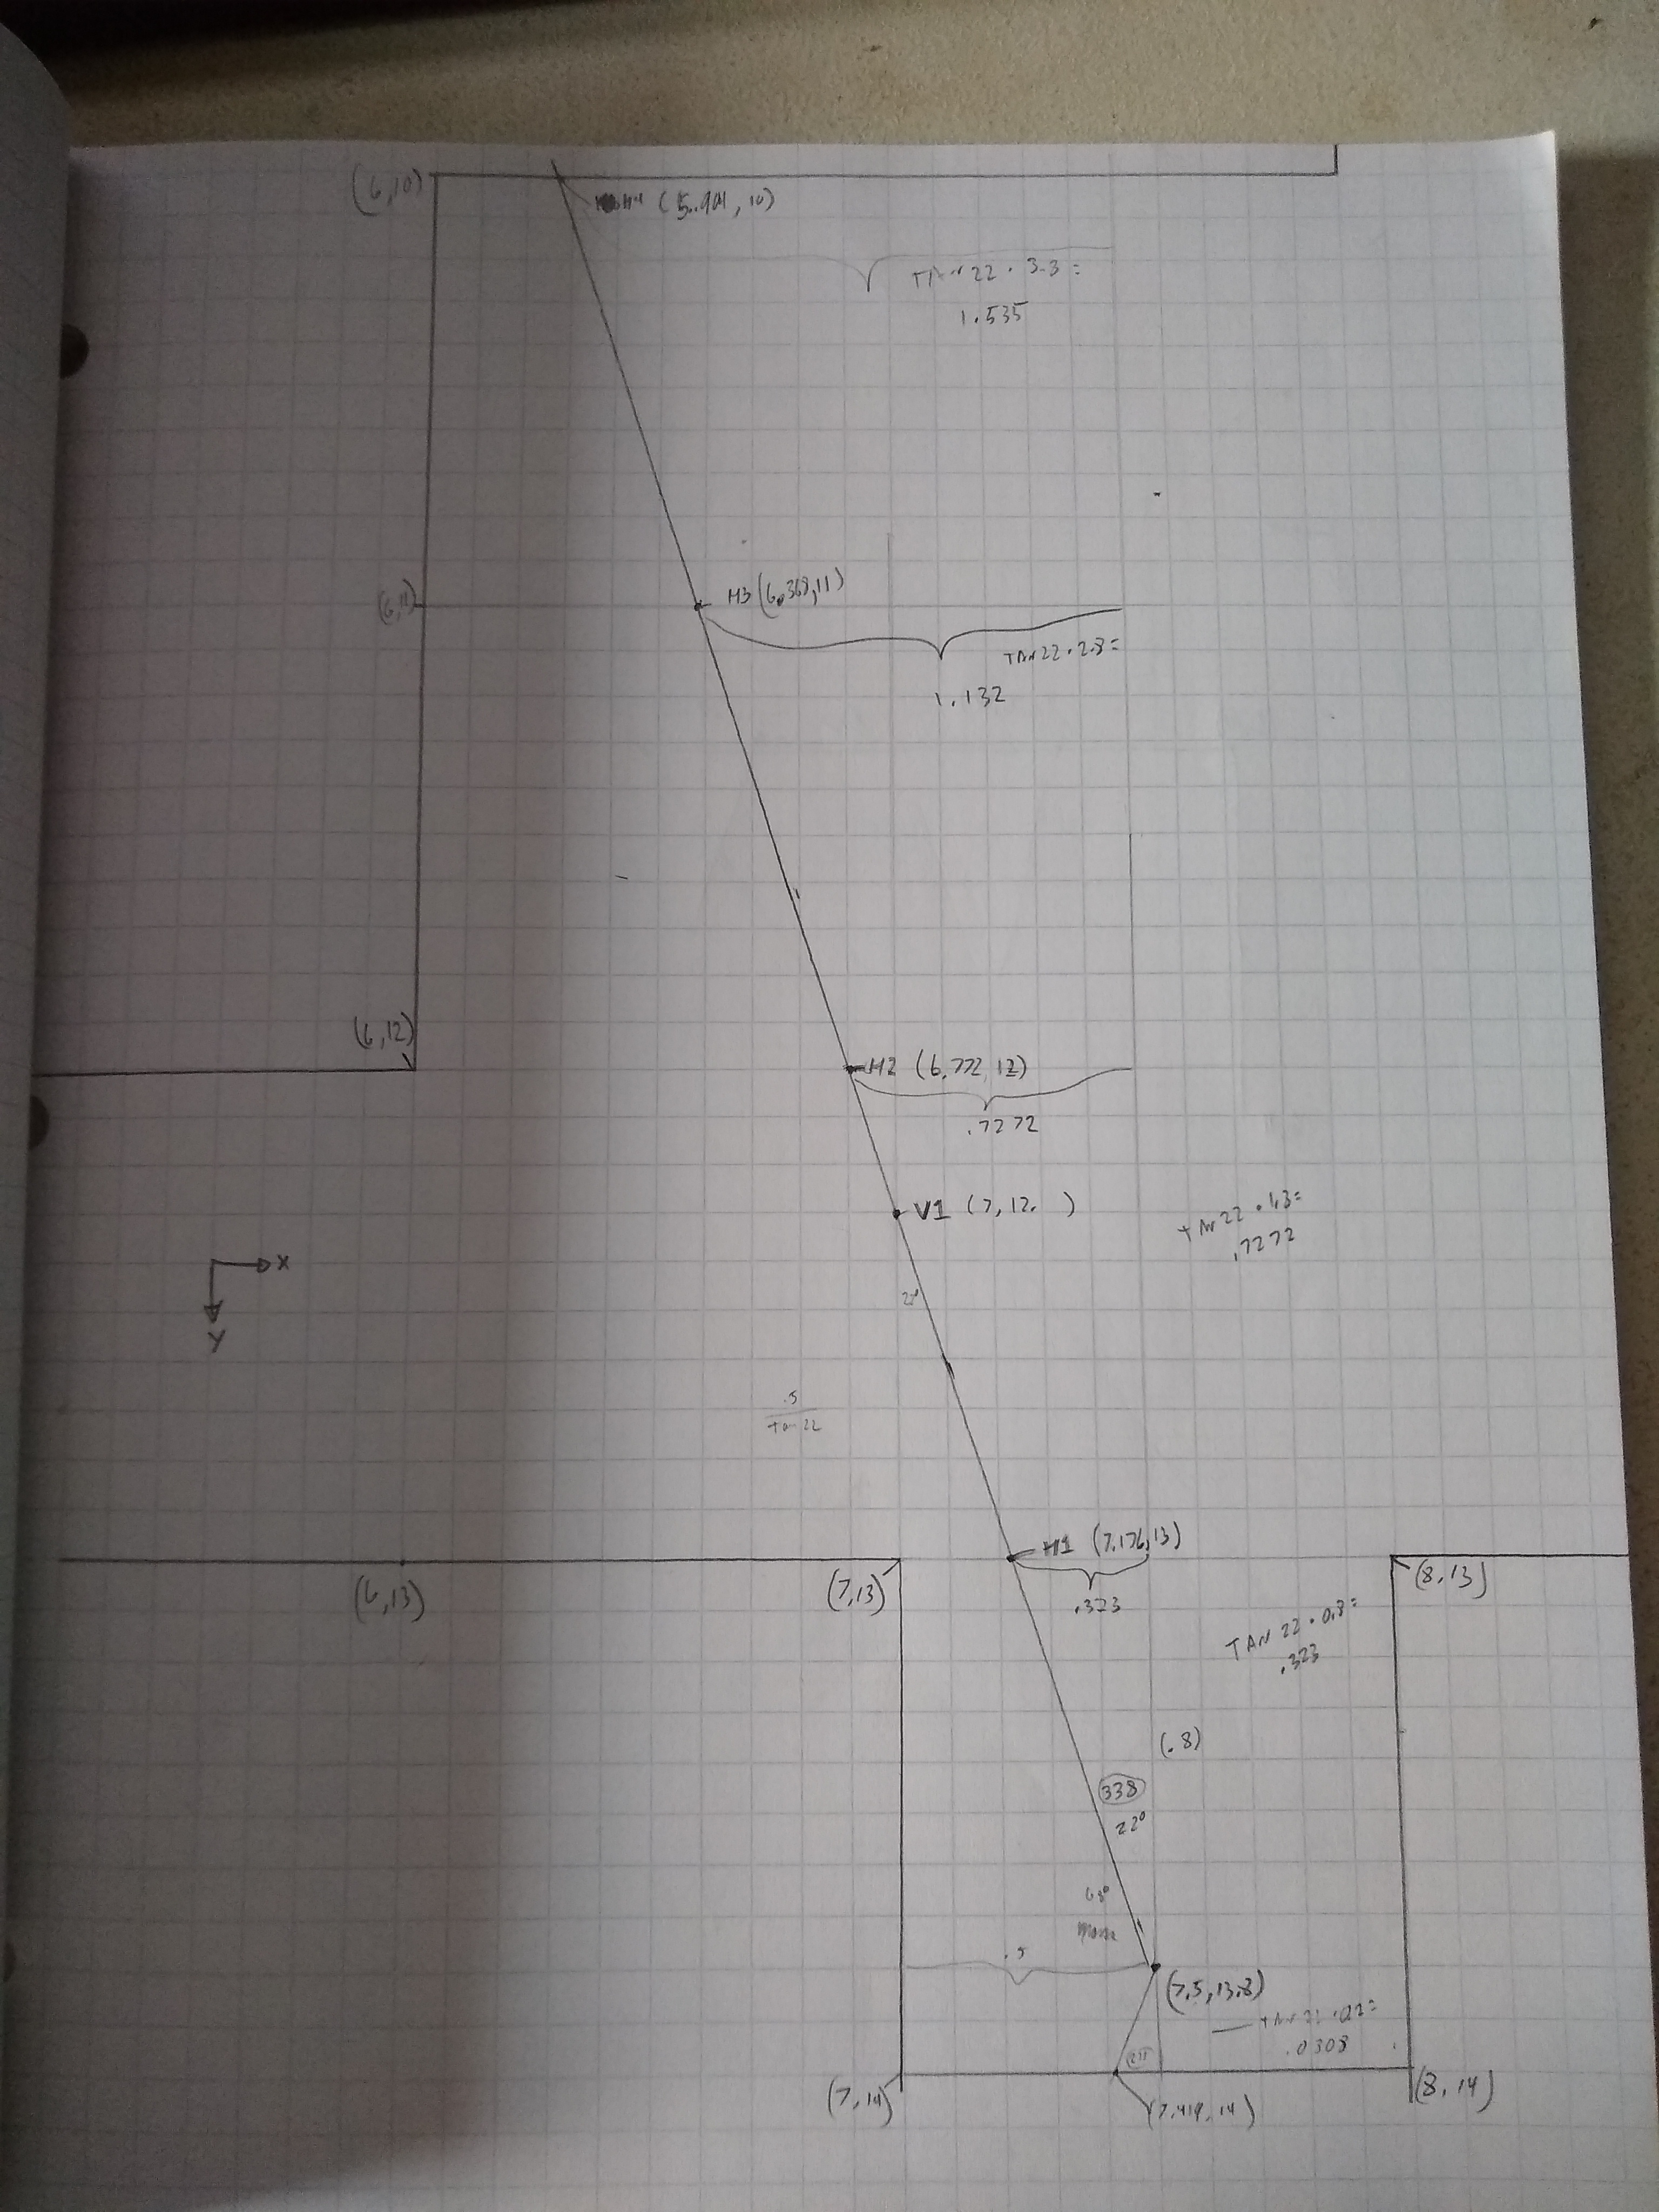 (6,10)
H4 (5.901, 10)
TAN 22 · 3.3 =
1.535
(6,11)
H3 (6.368,11)
TAN 22 · 2.8 =
1.132
(6,12)
H2 (6.772, 12)
.7272
V1 (7, 12. )
TAN 22 · 1.3 =
.7272
X
Y
22°
.5
tan 22
H1 (7.176,13)
(6,13)
(7,13)
.323
(8,13)
TAN 22 · 0.8 =
.323
(.8)
338
22°
68°
.5
(7.5,13.8)
TAN 22 · 0.2 =
.0808
(7,14)
(7.419, 14)
(8, 14)